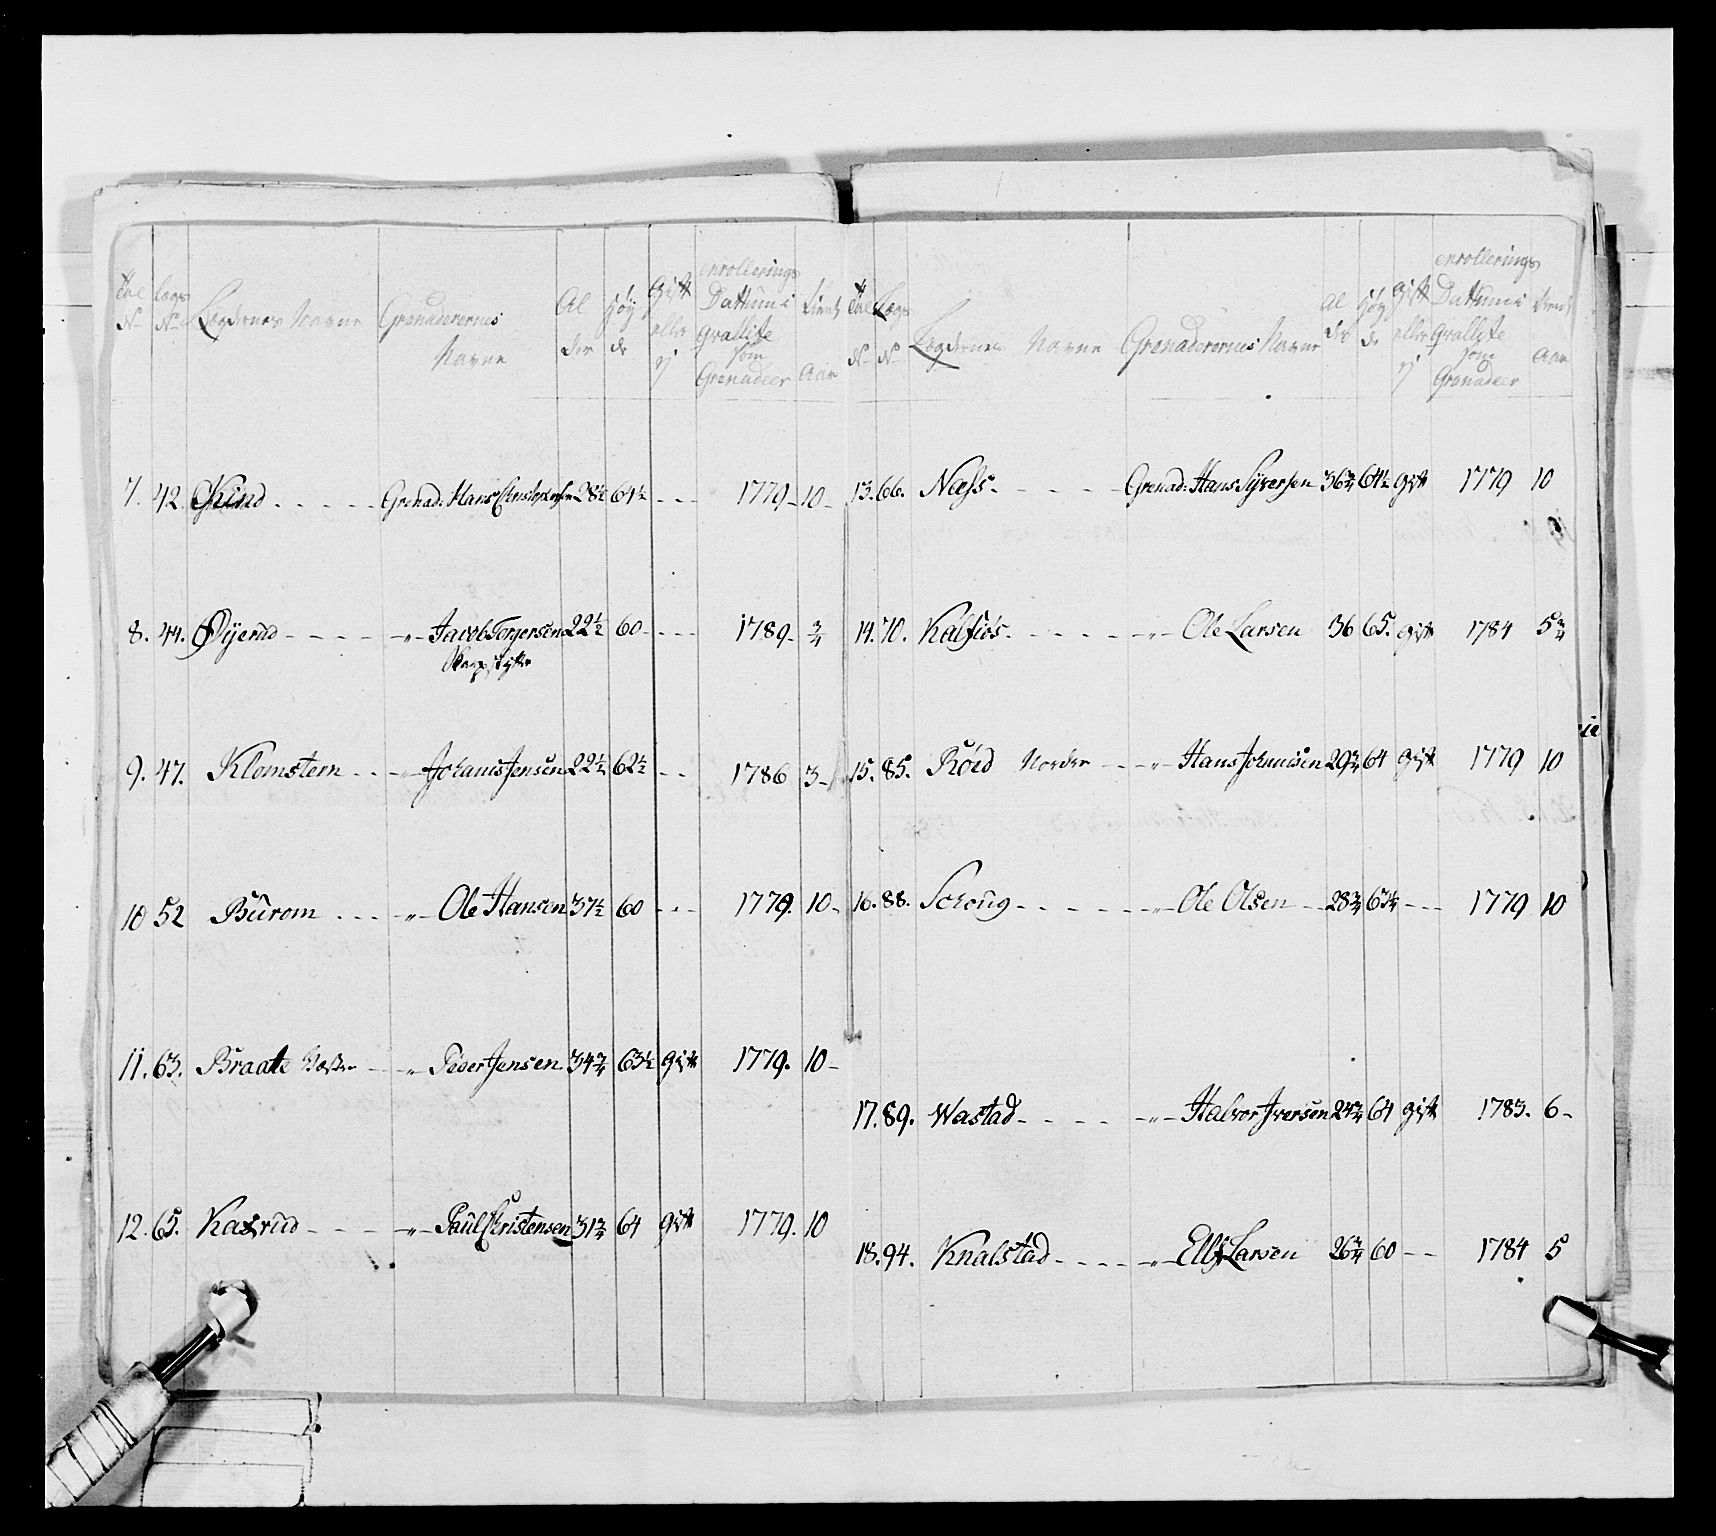 Tal No Lægs No Lægdernes Navne Grenaderernes Navne Al der Høy de gift eller ej enrollerings Dattum i qvallite som Grenadeer tient Aar
7. 42. Kind Grenad: Hans 28½ 64½ - - - 1779 10
8. 44. Øyerud - " - Jacob Torgersen 22½ 60 - - - 1789 ¾
9. 47. Klomstern - " - Johanis Jensen 22½ 62½ - - 1786 3
10 52 Burom - " - Ole Hansen 37½ 60 - - - 1779. 10
11. 63. Braate - " - Peder Jensen 34¾ 63½ gift 1779. 10
12. 65. Kaxrud - " - Paul Christensen 31¾ 64 gift 1779. 10
Tal No Lægs No Lægdernes Navne Grenaderernes Navne Al der Høy de gift eller ej enrollerings Dattum i qvallite som Grenadeer tient Aar
13. 66. Næss Grenad: Hans Syversen 36¾ 64½ gift 1779 10
14. 70. Kalfiøs - " - Ole Larsen 36 65. gift 1784 5¾
15. 85. Røed Nordre - " - Hans Johannisen 29¾ 64 gift 1779 10
16. 88. Schoug - " - Ole Olsen 28¾ 63½ - - - 1779 10
17. 89. Wastad - " - Halvor Iversen 24¾ 64 gift 1783. 6
18. 94. Knalstad - " - Larsen 26¾ 60 - - 1784 5